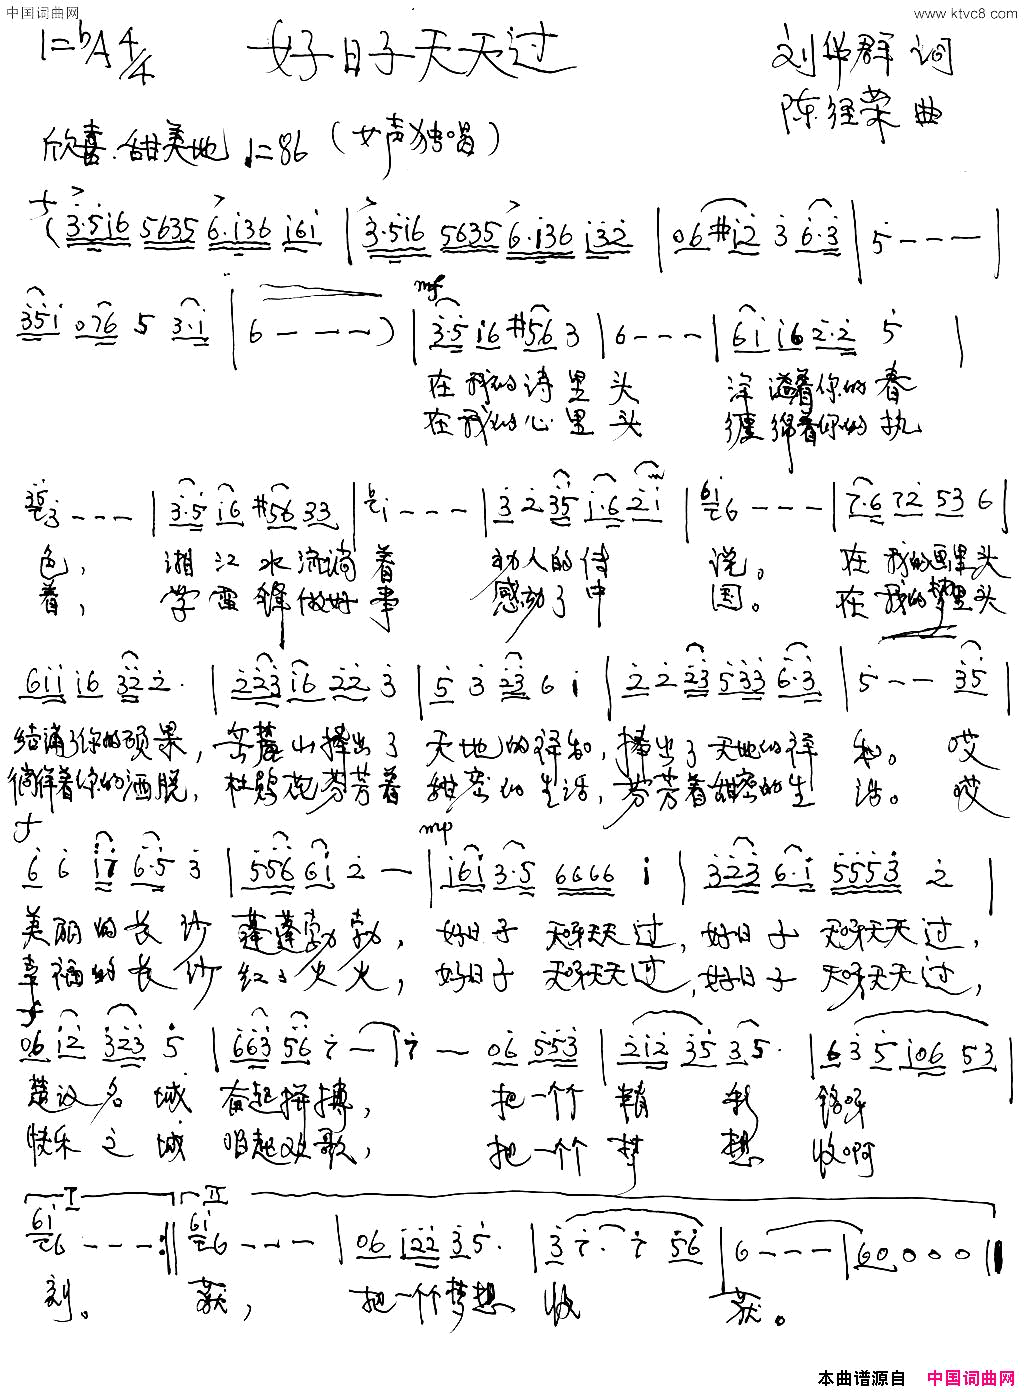 中国词曲网
www.ktvc8.com
1=bA 4/4
好日子天天过
刘华群 词
陈经荣 曲
欣喜.甜美地 ♩=86 (女声独唱)
f
(3·5i6 5635 6·i36 i6i | 3·5i6 5635 6·i36 i32 | 06 #i2 3 6·3 | 5 - - - |
35i 076 5 3·i | 6 - - - ) | mf 3·5 i6 #56 3 | 6 - - - | 6i i6 2·2 5 |
在我的诗里头 洋溢着你的春
在我的心里头 缠绵着你的执
3 - - - | 3·5 i6 #56 33 | i - - - | 3 2 35 i·6 2i | 6 - - - | 7·6 72 53 6 |
色, 湘江水流淌着 动人的传说。 在我的画里头
着, 学雷锋做好事 感动了中国。 在我的梦里头
6ii i6 32 2· | 223 i6 22 3 | 5 3 23 6 i | 2 2 23 533 6·3 | 5 - - 35 |
结满了你的硕果, 岳麓山捧出了 天地的祥和, 捧出了天地的祥和。 哎
徜徉着你的洒脱, 杜鹃花芬芳着 甜蜜的生活, 芬芳着甜蜜的生活。 哎
f
mp
6 6 ii 6·5 3 | 556 6i 2 - | i6i 3·5 6666 i | 323 6·i 5553 2 |
美丽的长沙 蓬蓬勃勃, 好日子 天呀天天过, 好日子 天呀天天过,
幸福的长沙 红红火火, 好日子 天呀天天过, 好日子 天呀天天过,
f
06 i2 323 5 | 663 56 7 - | 7 - 06 553 | 2i2 35 3 5· | 6 3 5 i06 53 |
楚汉名城 奋起拼搏, 把一个个精彩铭呀
快乐之城 唱起欢歌, 把一个个梦想收啊
I II
6 - - - :|| 6 - - - | 06 i22 3 5· | 3 7· 7 56 | 6 - - - | 60 0 0 0 ||
刻。 获, 把一个个梦想 收 获。
本曲谱源自 中国词曲网